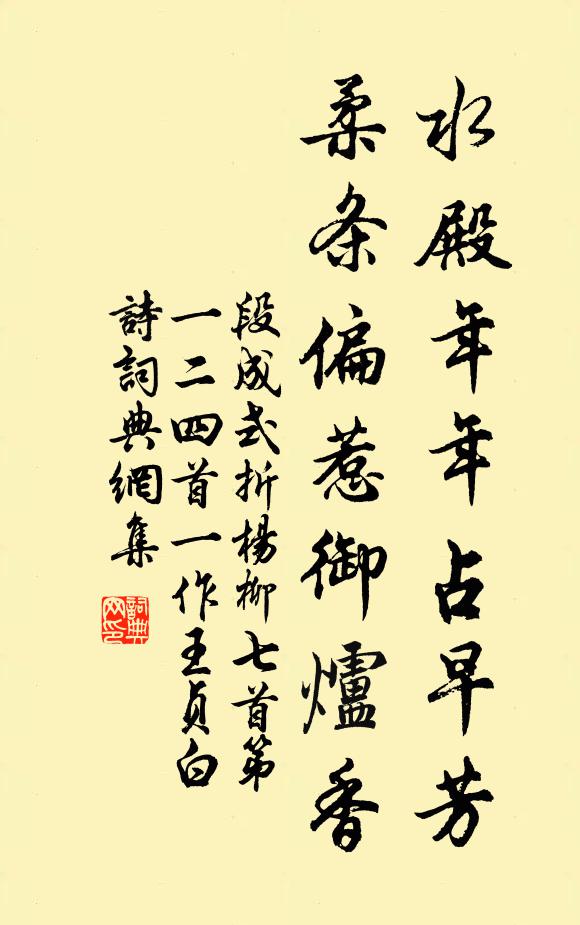 水殿年年占早芳
柔条偏惹御爐香
段成式折楊柳七首第
一二四首一作王貞白
詩詞典網集
詞典
网印